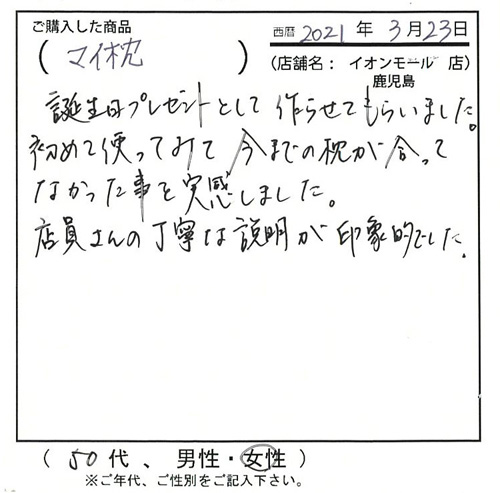 ご購入した商品
西暦 2021 年 3月23日
( マイ枕 )
(店舗名： イオンモール 店)
鹿児島
誕生日プレゼントとして作らせてもらいました。
初めて使ってみて今までの枕が合って
なかった事を実感しました。
店員さんの丁寧な説明が印象的でした。
( 50 代 、 男性・女性 )
※ご年代、ご性別をご記入下さい。